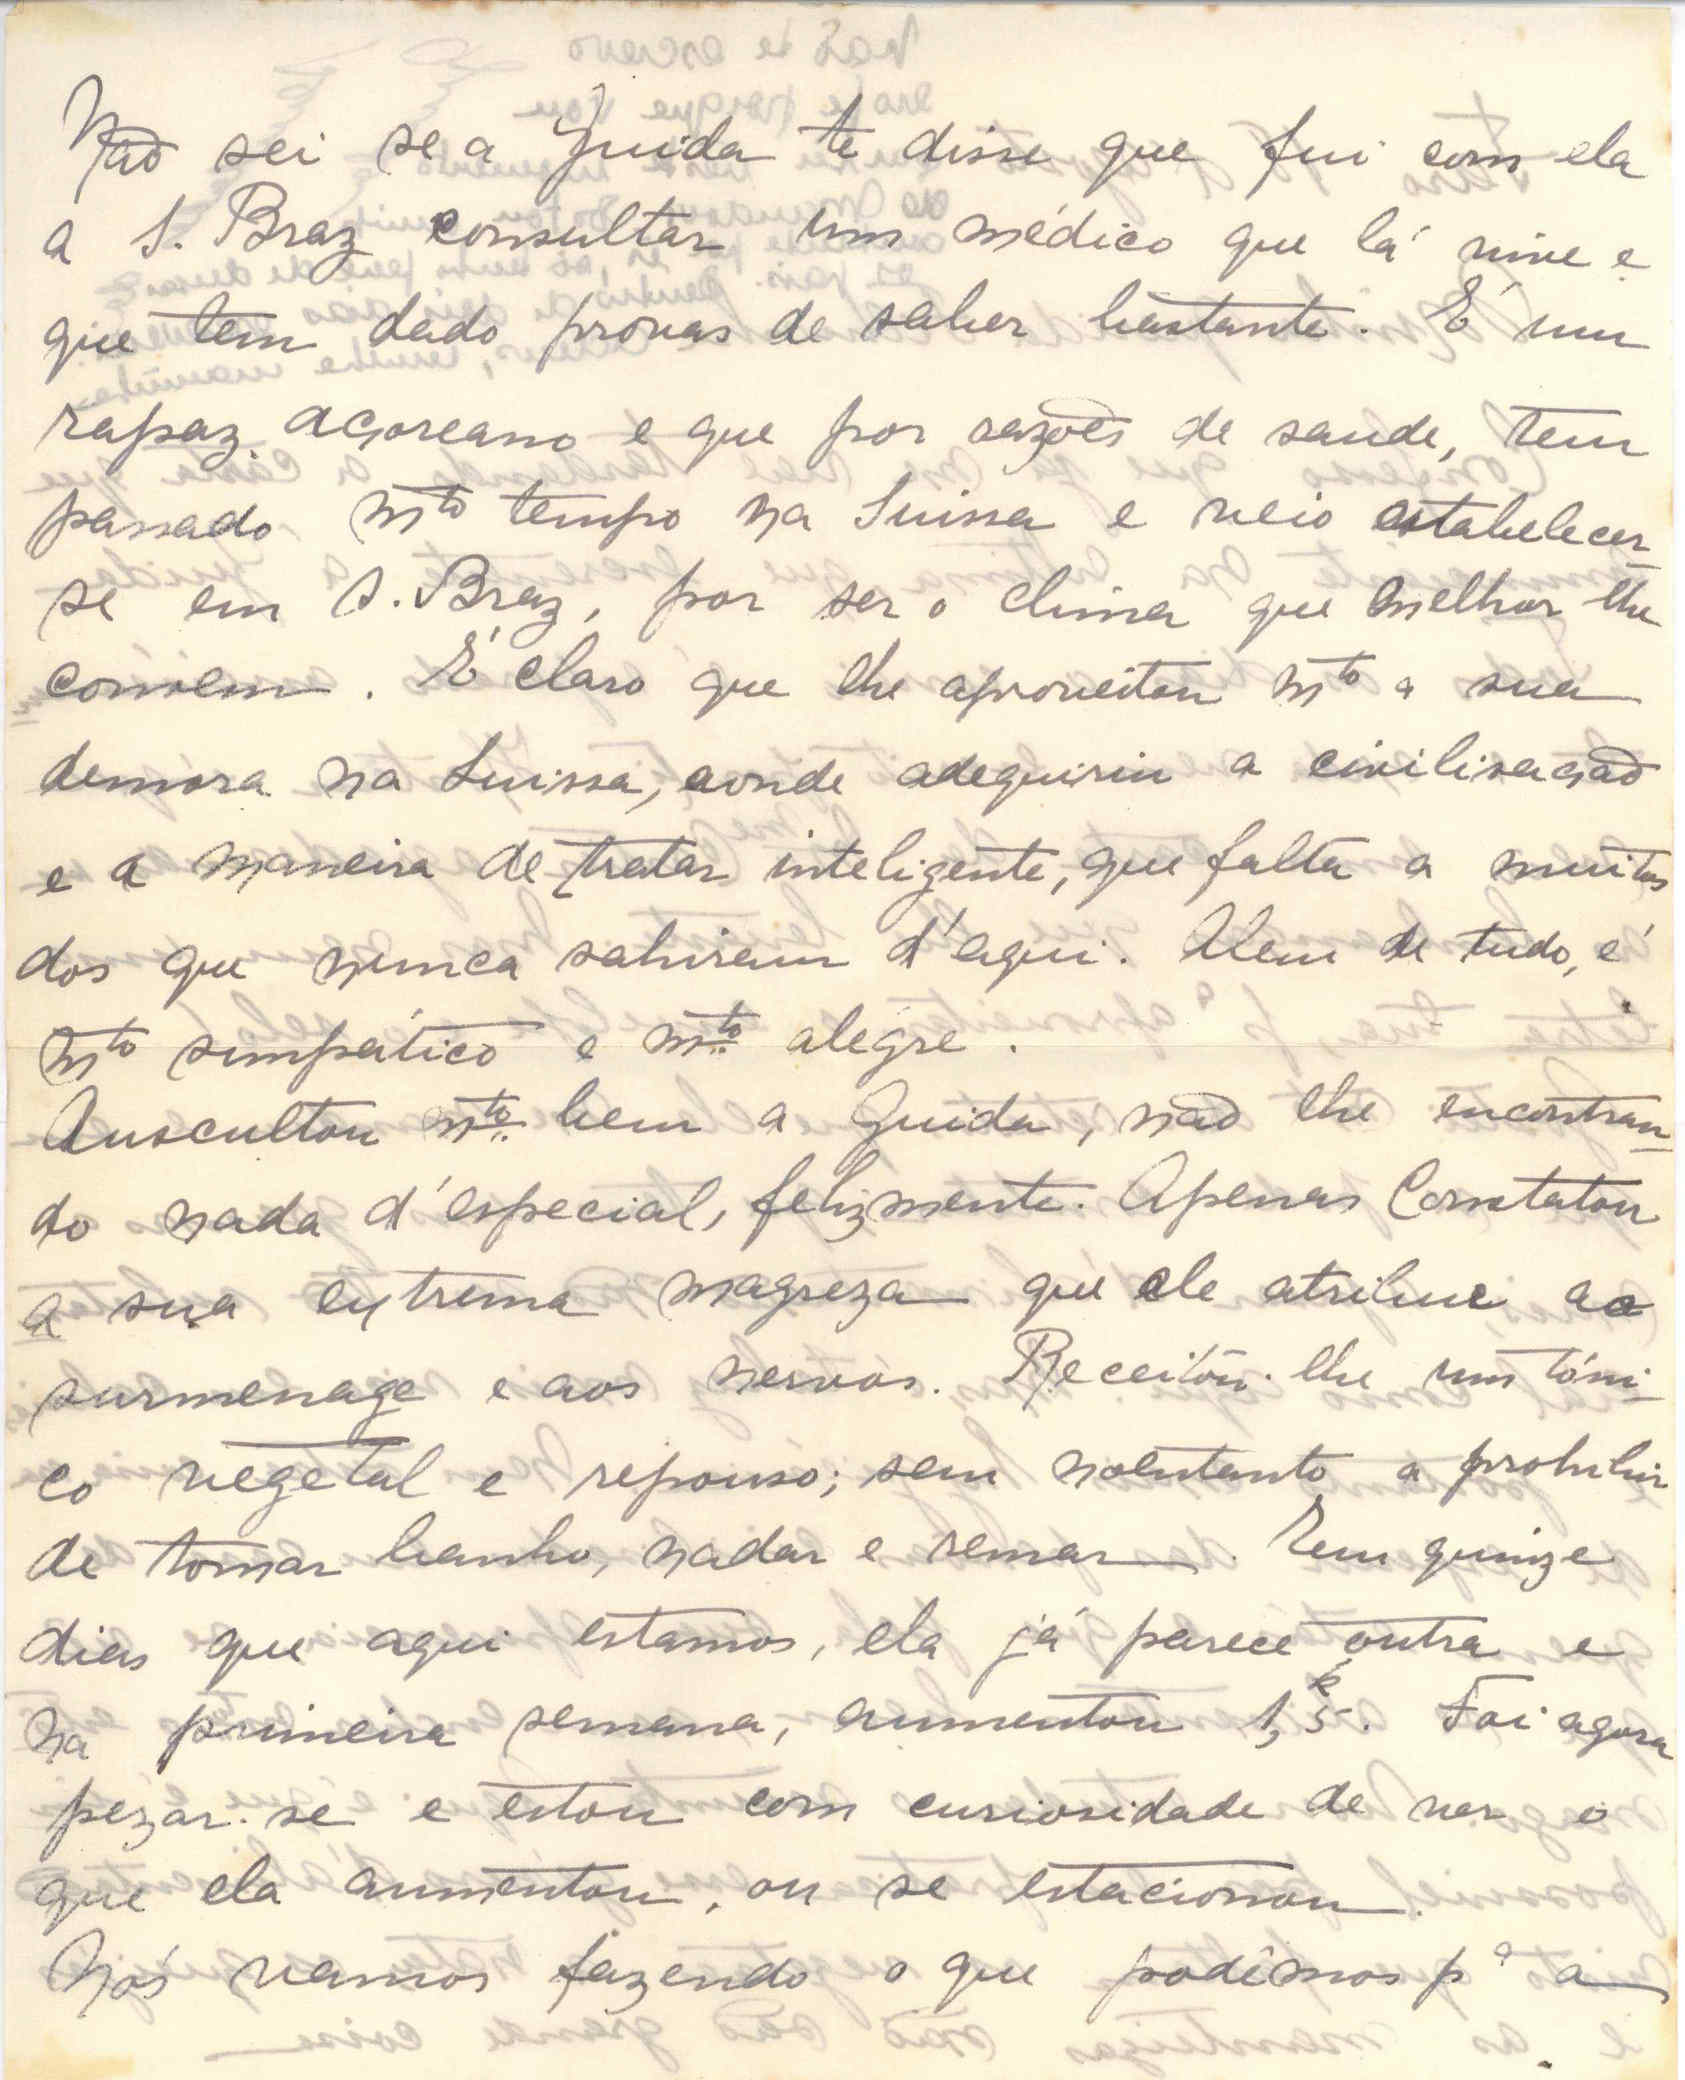 Não sei se a Guida te disse que fui com ela
a S. Braz consultar um médico que lá vive e
que tem dado provas de saber bastante. É um
rapaz açoreano e que por razões de saude, tem
passado mto tempo na Suissa e veio estabelecer-
se em S. Braz, por ser o clima que melhor lhe
convem. É claro que lhe aproveitou mto a sua
demora na Suissa, aonde adequiriu a civilisação
e a maneira de tratar inteligente, que falta a muitos
dos que nunca sahiram d'aqui. Alem de tudo, é
mto simpático e mto alegre.
Auscultou mto bem a Guida, não lhe encontran-
do nada d'especial, felizmente. Apenas Constatou
a sua extrema magreza que ele atribue ao
surmenage e aos nervos. Receitou-lhe um tóni-
co vegetal e repouso; sem noentanto a prohibir
de tomar banho, nadar e remar. Tem quinze
dias que aqui estamos, ela já parece outra e
na primeira semana, aumentou 1,5k. Foi agora
pezar-se e estou com curiosidade de ver o
que ela aumentou, ou se estacionou.
Nós vamos fazendo o que podêmos pa a